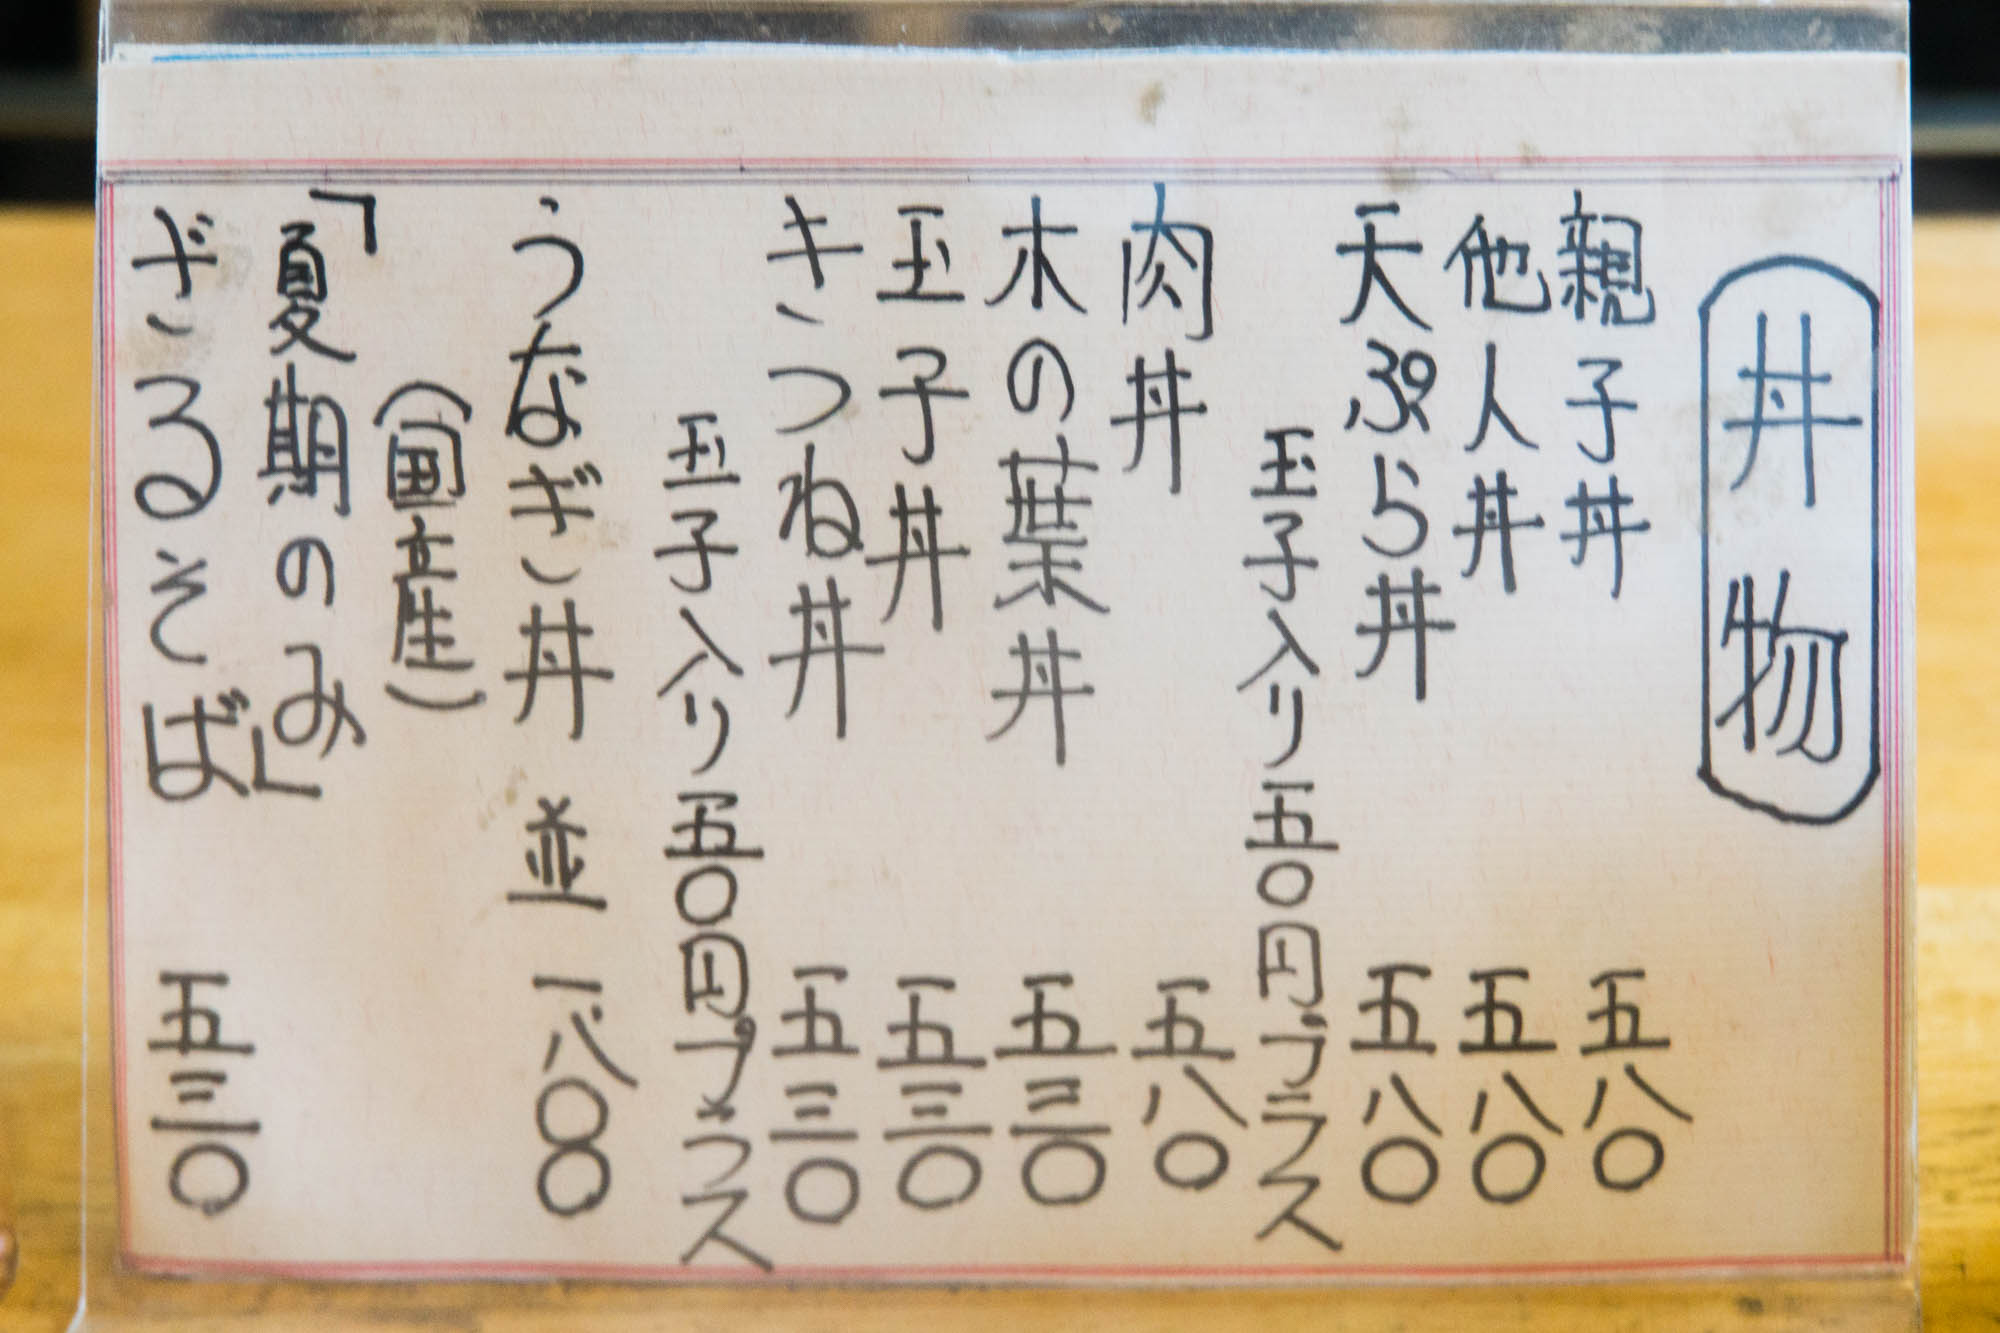 丼物
親子丼 五八〇
他人丼 五八〇
天ぷら丼 五八〇
玉子入り五〇円プラス
肉丼 五八〇
木の葉丼 五三〇
玉子丼 五三〇
きつね丼 五三〇
玉子入り五〇円プラス
うなぎ丼 並 一八〇〇
(国産)
「夏期のみ」
ざるそば 五三〇